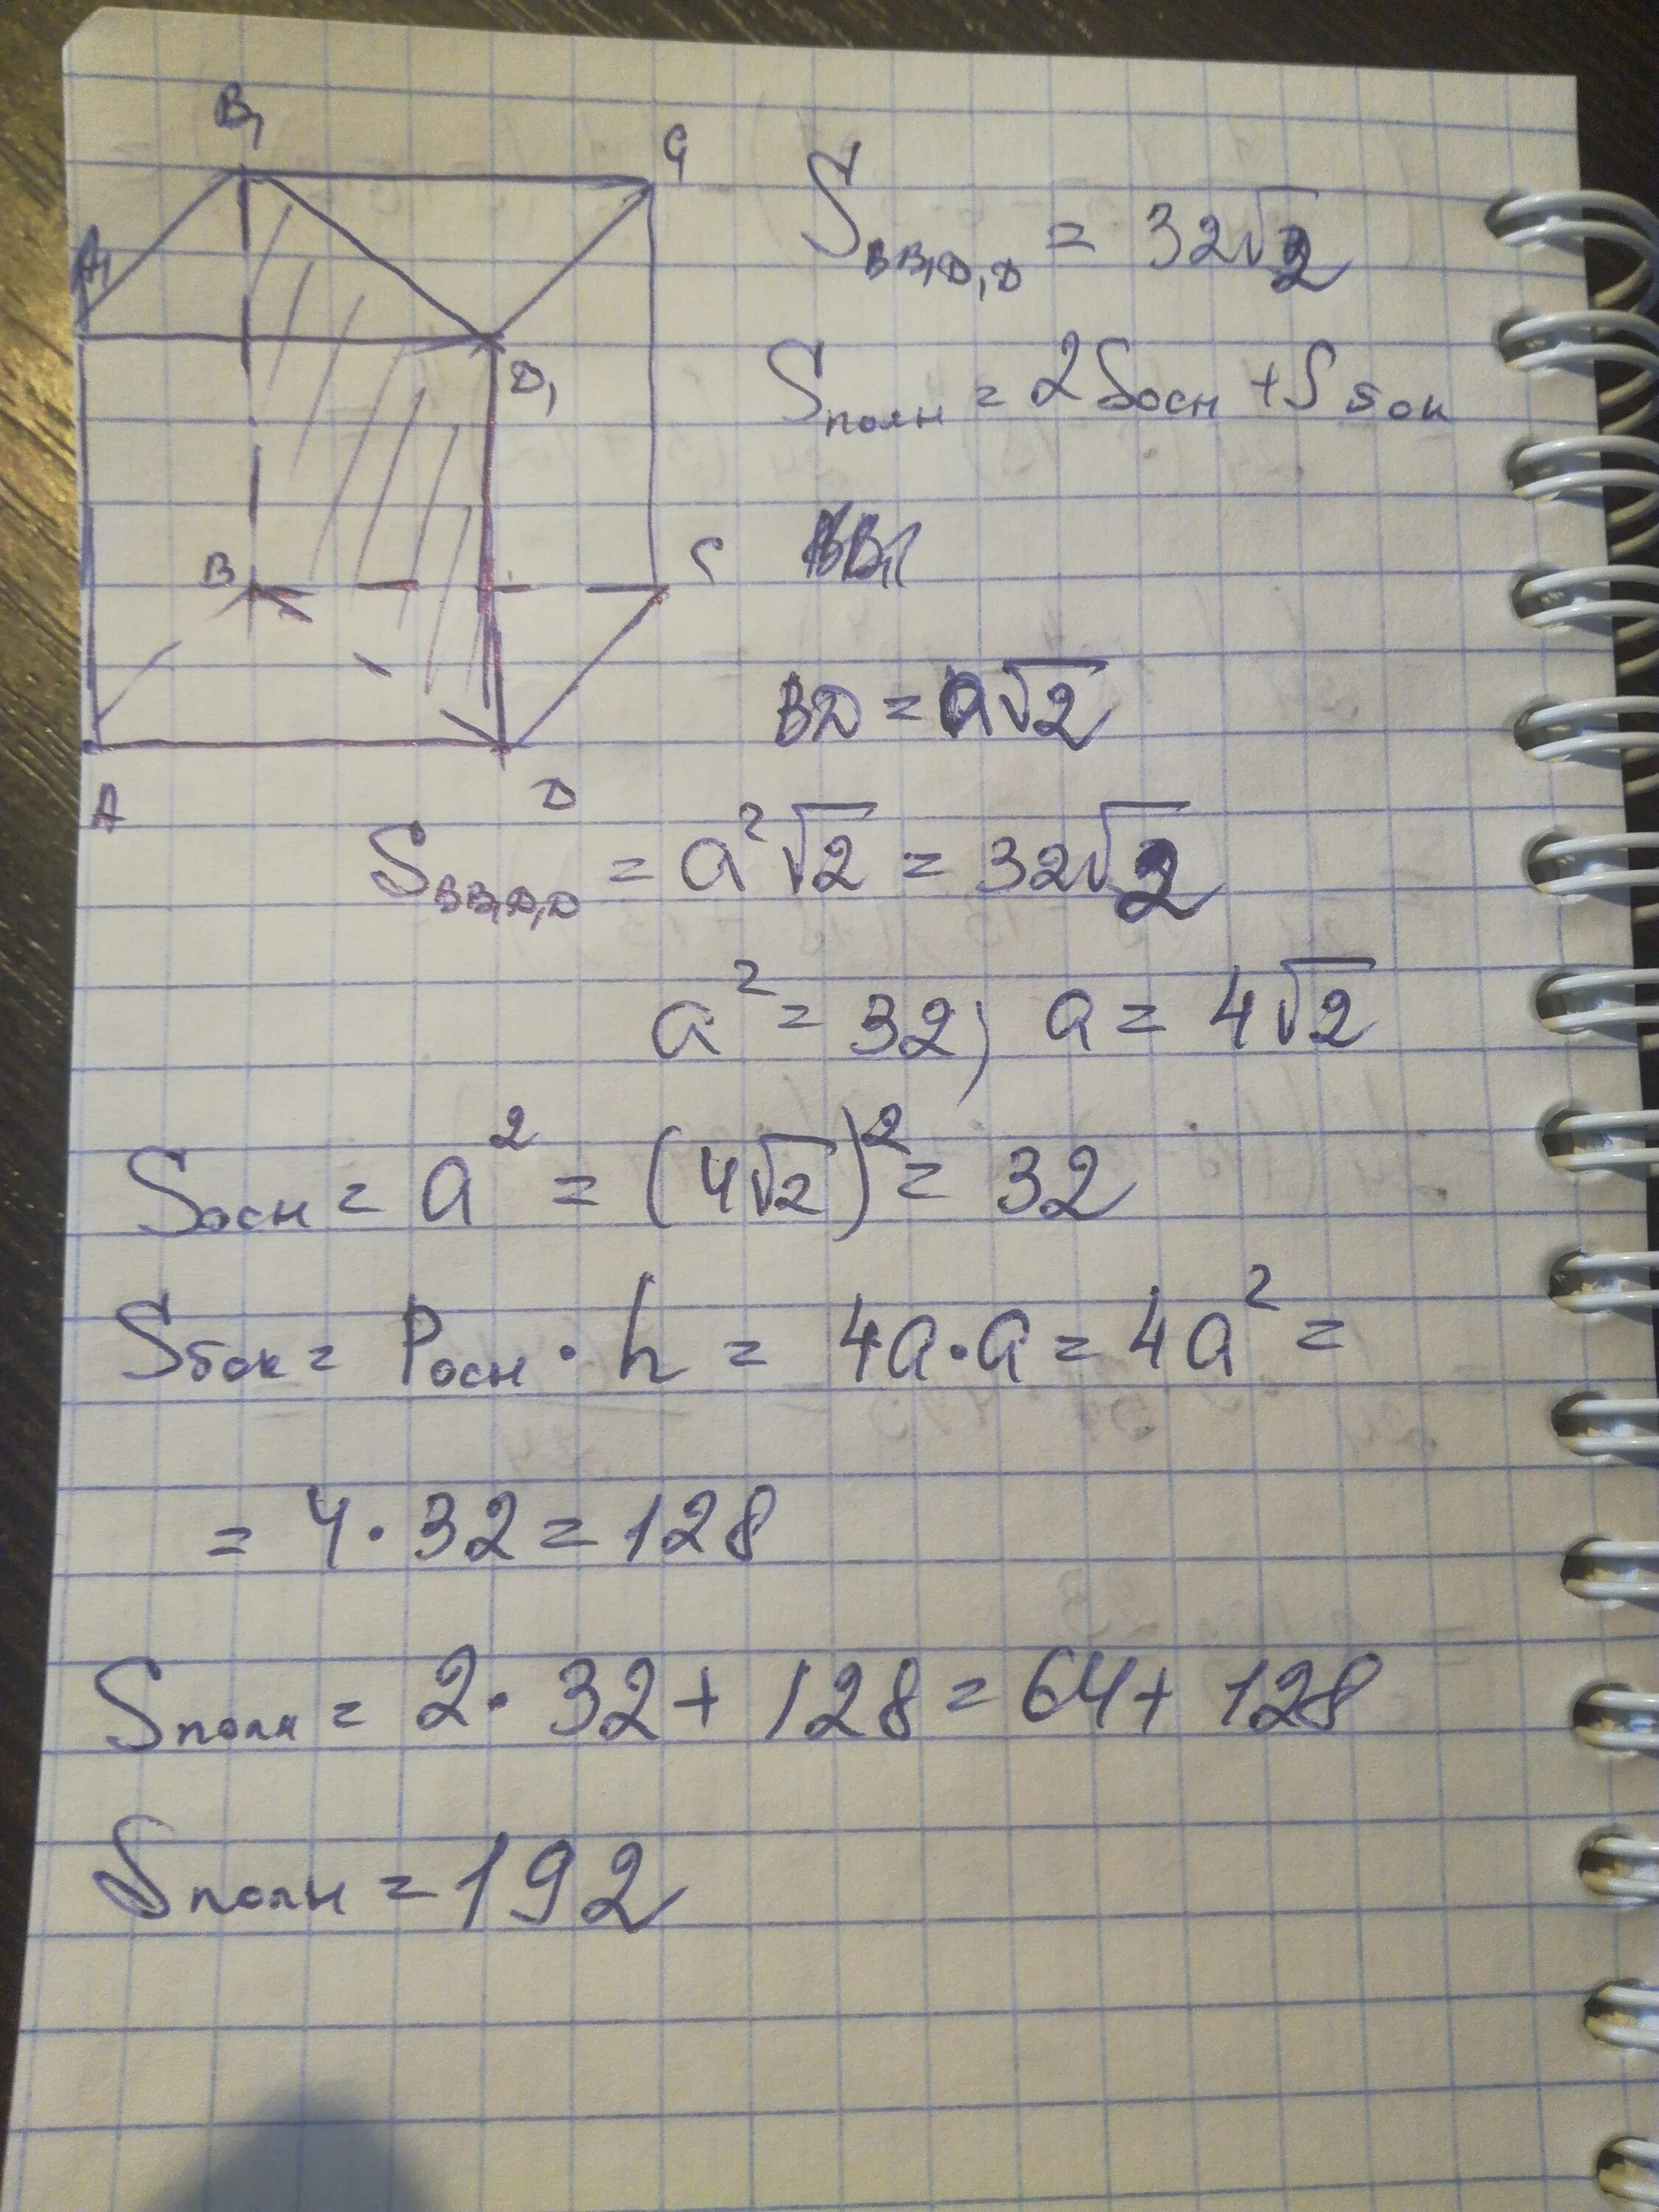 B₁
C₁
A₁
D₁
B
C
A
D
S_BB₁D₁D = 32√2
Sполн = 2Sосн + Sбок
BD = a√2
S_BB₁D₁D = a²√2 = 32√2
a² = 32; a = 4√2
Sосн = a² = (4√2)² = 32
Sбок = Pосн · h = 4a·a = 4a² =
= 4·32 = 128
Sполн = 2·32 + 128 = 64 + 128
Sполн = 192